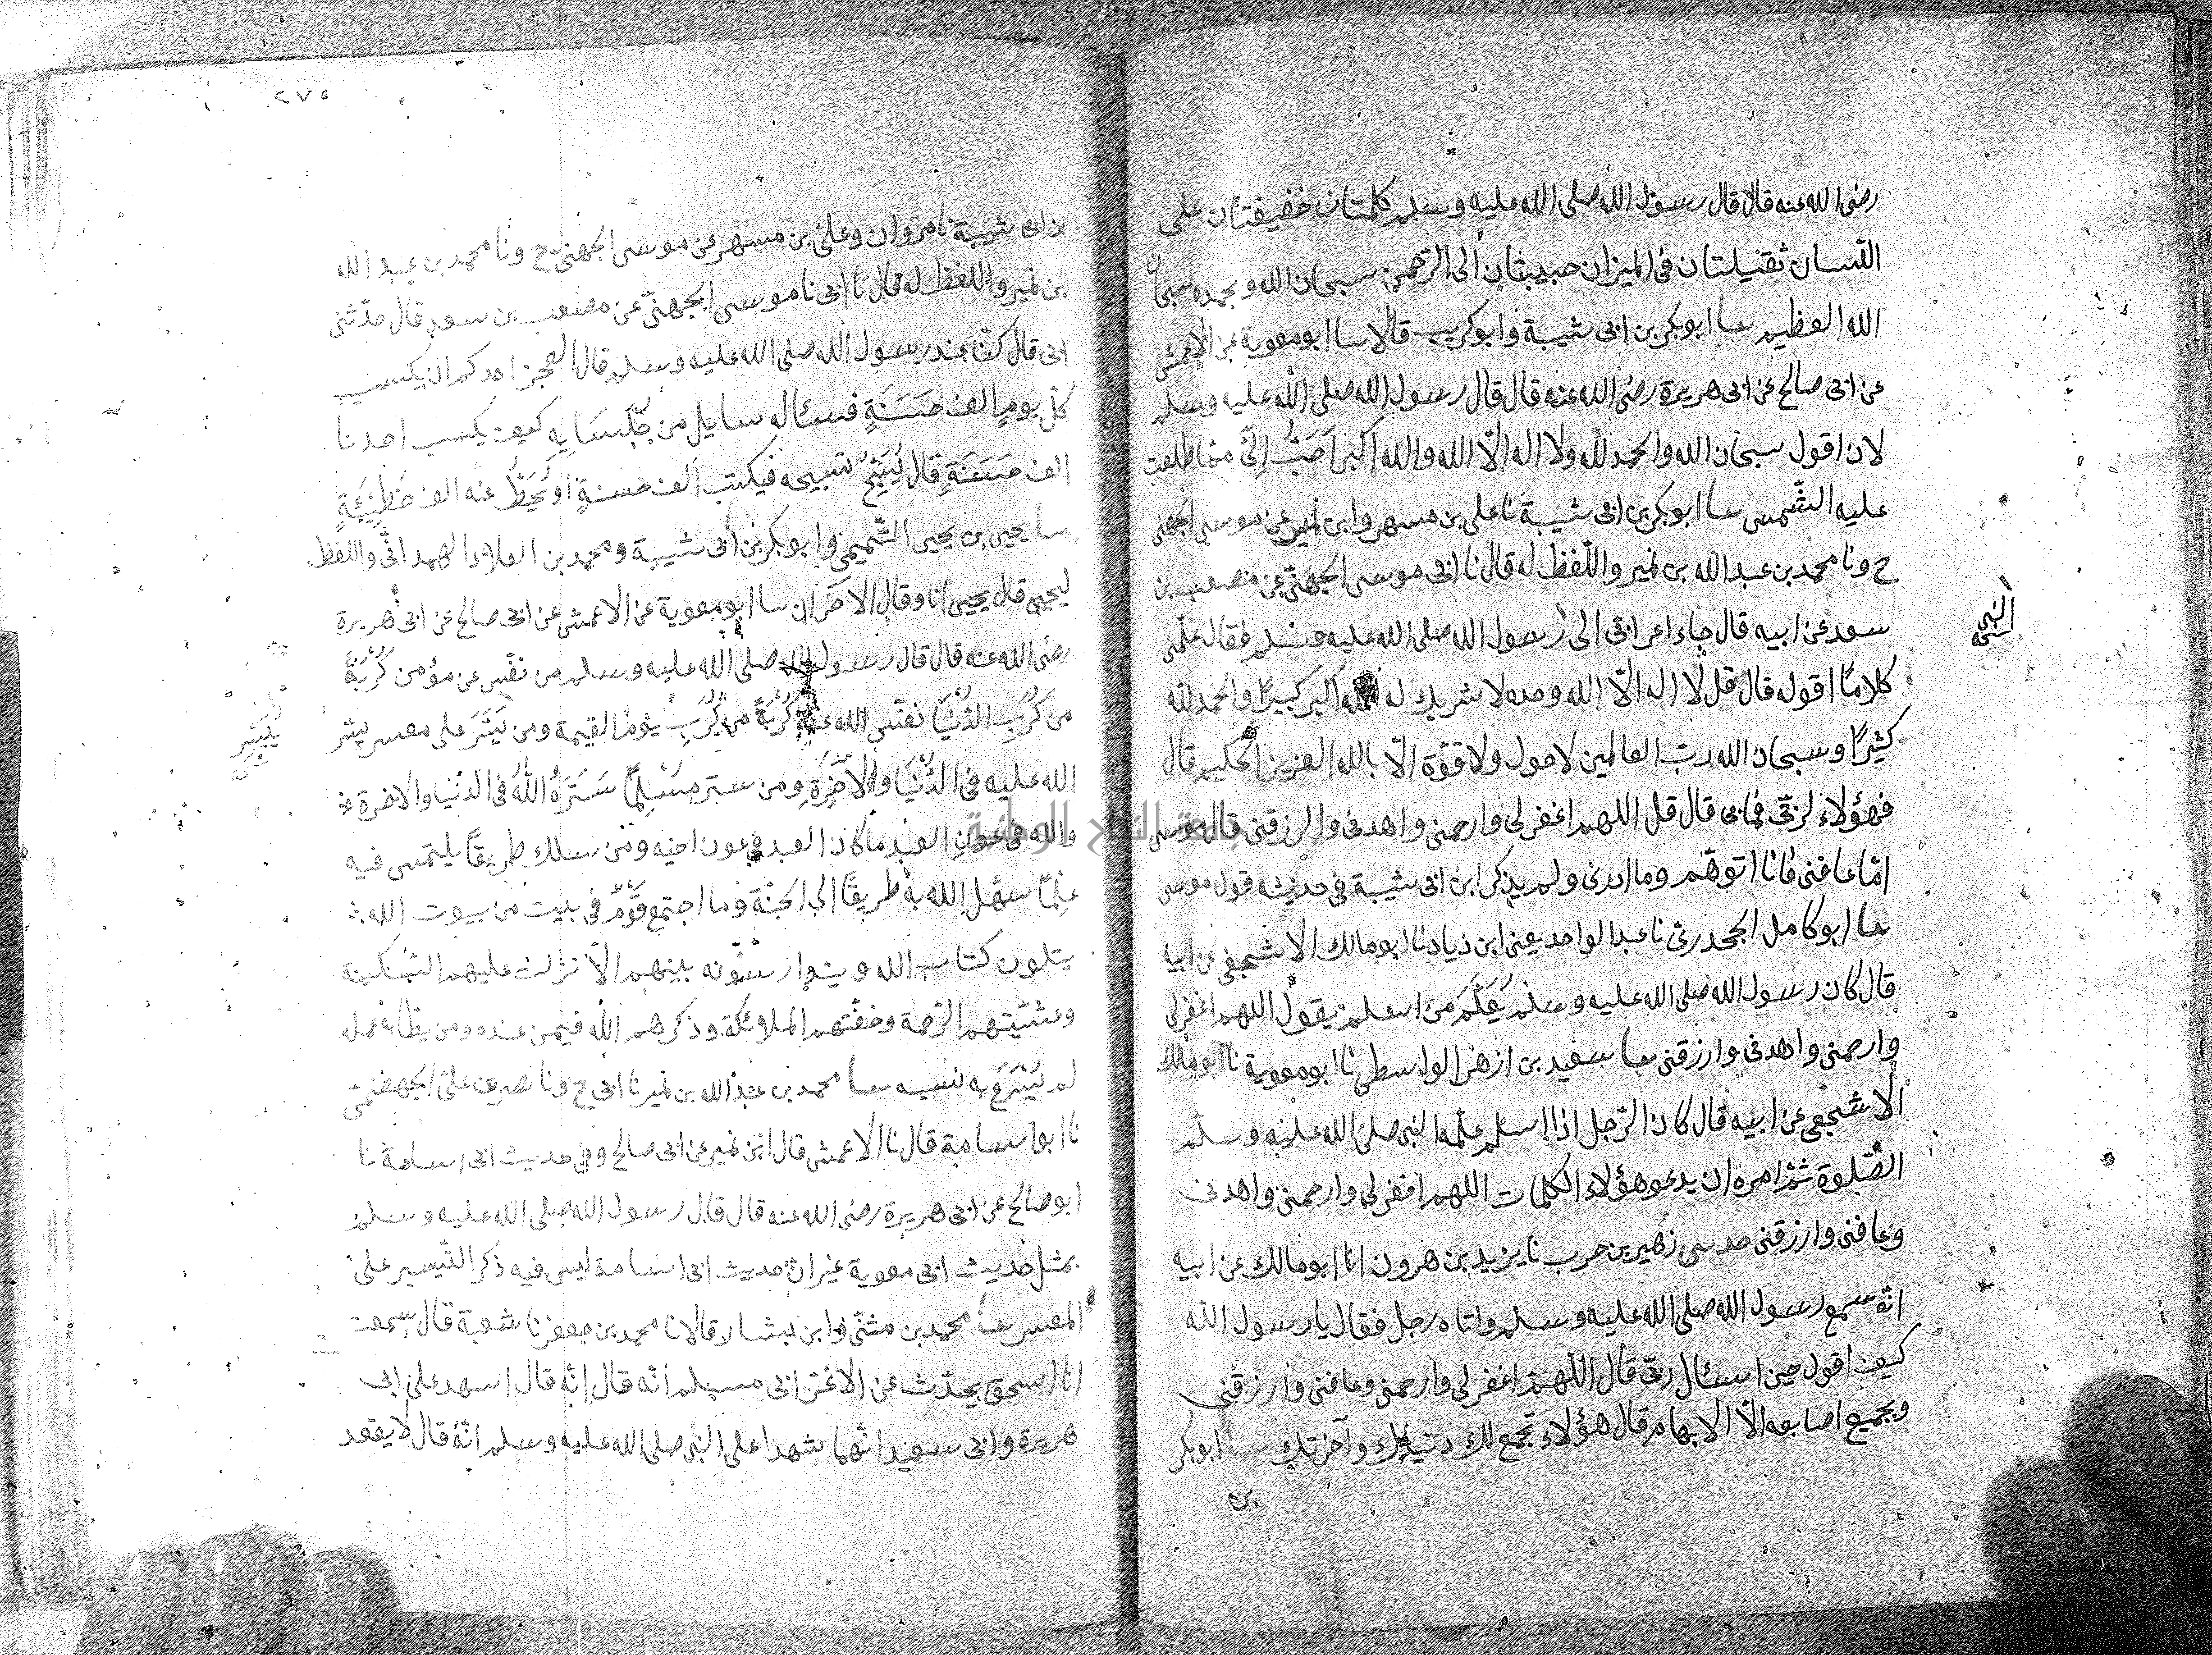 رضى الله عنه قال قال رسول الله صلى الله عليه وسلم كلمتان خفيفتان على
اللسان ثقيلتان فى الميزان حبيبتان الى الرحمن سبحان الله وبحمده سبحان
الله العظيم سا ابو بكر بن ابى شيبة وابو كريب قالا سا ابو معوية عن الاعمش
عن ابى صالح عن ابى هريرة رضى الله عنه قال قال رسول الله صلى الله عليه وسلم
لان اقول سبحان الله والحمد لله ولا اله الّا الله والله اكبر اَحَبُّ اِلَىَّ مما طلعت
عليه الشمس سا ابو بكر بن ابى شيبة نا على بن مسهر وابن نمير عن موسى الجهنى
ح ونا محمد بن عبد الله بن نمير واللفظ له قال نا ابى موسى الجهنىّ عن مصعب بن
سعد عن ابيه قال جاء اعرابىّ الى رسول الله صلى الله عليه وسلم فقال علّمنى
النبى
نسخه
كلامًا اقوله قال قل لا اله الّا الله وحده لا شريك له الله اكبر كبيرًا والحمد لله
كثيرًا وسبحان الله رب العالمين لا حول ولا قوّة الّا بالله العزيز الحكيم قال
فهؤلاء لربّى فمالى قال قل اللهم اغفر لى وارحمنى واهدنى وارزقنى قال موسى
امّا عافنى فانا اتوهّم وما ادرى ولم يذكر ابن ابى شيبة فى حديثه قول موسى
سا ابو كامل الجحدرى نا عبد الواحد يعنى ابن زياد نا ابو مالك الاشجعى عن ابيه
قال كان رسول الله صلى الله عليه وسلم يُعَلِّمَ من اسلم يقول اللهم اغفر لى
وارحمنى واهدنى وارزقنى سا سعيد بن ازهر الواسطى نا ابو معوية نا ابو مالك
الاشجعى عن ابيه قال كان الرّجل اذا اسلم علّمه النبى صلى الله عليه وسلم
الصّلوة ثم امره ان يدعو هؤلاء الكلمات اللهم اغفر لى وارحمنى واهدنى
وعافنى وارزقنى حدسى زهير بن حرب نا يزيد بن هرون انا ابو مالك عن ابيه
انّه سمع رسول الله صلى الله عليه وسلم واتاه رجل فقال يا رسول الله
كيف اقول حين اسئال ربّى قال اللّهم اغفر لى وارحمنى وعافنى وارزقنى
وبجميع اصابعه الّا الابهام قال هؤلاء تجمع لك دنياك وآخرتك سا ابو بكر
بن
٢٧٥
بن ابى شيبة نا مروان وعلى بن مسهر عن موسى الجهنى ح ونا محمد بن عبد الله
بن نمير واللفظ له قال نا ابى نا موسى الجهنىّ عن مصعب بن سعد قال حدّثنى
ابى قال كنّا عند رسول الله صلى الله عليه وسلم قال العجز احدكم ان يكسب
كلّ يوم الف حَسَنَةٍ فسئاله سايل من جُلَسَايِه كيف يكسب احدنا
الف حَسَنَةٍ قال يُسَبِّحُ تسبيحه فيكتب الف حسنةٍ او يُحَطُّ عنه الف خَطِيْئَةٍ
سا يحيى بن يحيى التّميمى وابو بكر بن ابى شيبة ومحمد بن العلاء الهمدانىّ واللفظ
ليحيى قال يحيى انا وقال الاخران سا ابو معوية عن الاعمش عن ابى صالح عن ابى هريرة
رضى الله عنه قال قال رسول الله صلى الله عليه وسلم من نفّس عن مؤمن كُرْبَةً
من كُرَبِ الدُّنْيَا نفّس الله عنه كُرْبَةً من كُرَبِ يوم القيمة ومن يَسَّرَ على معسر يسّر
الله عليه فى الدُّنْيَا والاٰخِرَةِ ومن ستر مُسْلِمًا سَتَرَهُ اللّٰهُ فى الدّنيا والاخرة
والله فى عون العبد ما كان العبد فى عون اخيه ومن سلك طريقًا يلتمس فيه
عِلْمًا سهّل الله به طريقًا الى الجنّة وما اجتمع قَوْمٌ فى بيت من بيوت الله
يتلون كتاب الله ويتدارسونه بينهم الّا نزلت عليهم السّكينة
وغشيتهم الرّحمة وحفّتهم الملائكة وذكرهم الله فيمن عنده ومن بطّا به عمله
لم يُسْرِع به نسبه سا محمد بن عبد الله بن نمير نا ابى ح ونا نصر بن على الجهضمى
نا ابو اسامة قال نا الاعمش قال ابن نمير عن ابى صالح وفى حديث ابى اسامة نا
ابو صالح عن ابى هريرة رضى الله عنه قال قال رسول الله صلى الله عليه وسلم
بمثل حديث ابى معوية غير انّ حديث ابى اسامة ليس فيه ذكر التّيسير على
المعسر سا محمد بن مثنّى وابن بشار قالا نا محمد بن جعفر نا شعبة قال سمعت
انا اسحق يحدّث عن الاغرّ ابى مسلم انّه قال انّه قال اسهد على ابى
هريرة وابى سعيد انّهما شهدا على النبى صلى الله عليه وسلم انّه قال لا يقعد